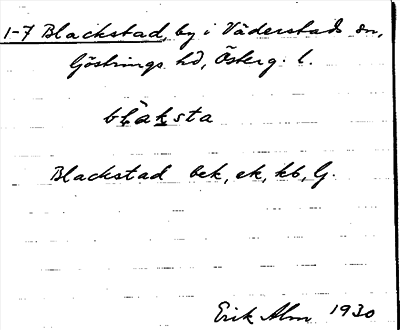 1-7 Blackstad, by i Väderstads sn,
Göstrings hd, Österg. l.
blaksta
Blackstad bek, ek, kb, G.
Erik Alm 1930